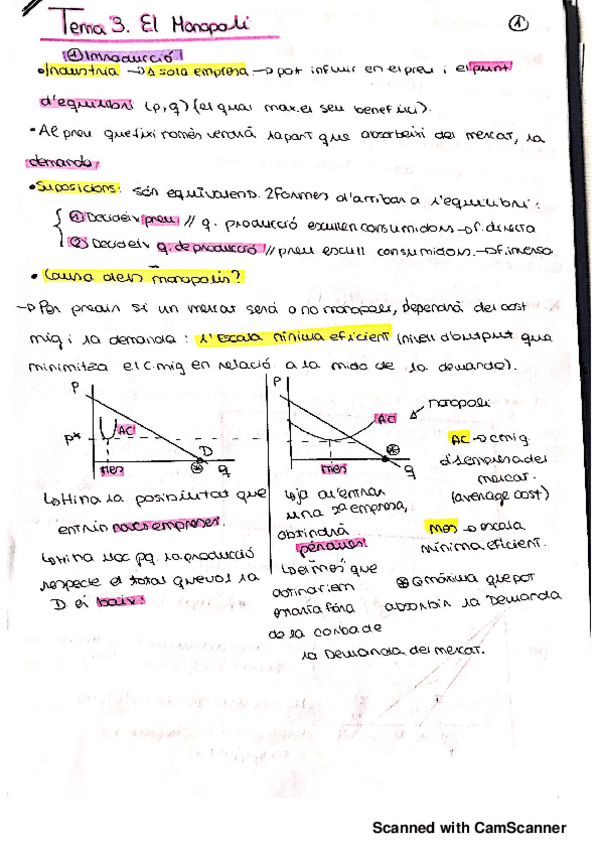 Tema 3. El Monopoli
1
① Introducció
• Indústria → 1 sola empresa → pot influir en el preu i el punt
d'equilibri (p,q) (el qual max. el seu benefici).
• Al preu que fixi només vendrà la part que absorbeixi del mercat, la
demanda.
• Suposicions: són equivalents. 2 formes d'arribar a l'equilibri:
① Decideix preu // q. producció escullen consumidors → f. directa
② Decideix q. de producció // preu escull consumidors. → f. inversa
• Causa dels monopolis?
→ Per predir si un mercat serà o no monopoli, dependrà del cost
mig i la demanda: l'Escala mínima eficient (nivell d'output que
minimitza el C.mig en relació a la mida de la demanda).
P
P* AC D
mes q
P
AC
mes q
monopoli
AC → c.mig
d'1 empresa del
mercat.
(average cost)
mes → escala
mínima eficient.
⊛ Q màxima que pot
absorbir la Demanda
↳ Hi ha la possibilitat que
entrin noves empreses.
↳ Hi ha poc pq. la producció
respecte el total que vol la
D és baix.
↳ ja al entrar
una 2ª empresa,
obtindrà
pèrdues.
↳ el mes que
obtindriem
estaria fora
de la corba de
la Demanda del mercat.
Scanned with CamScanner